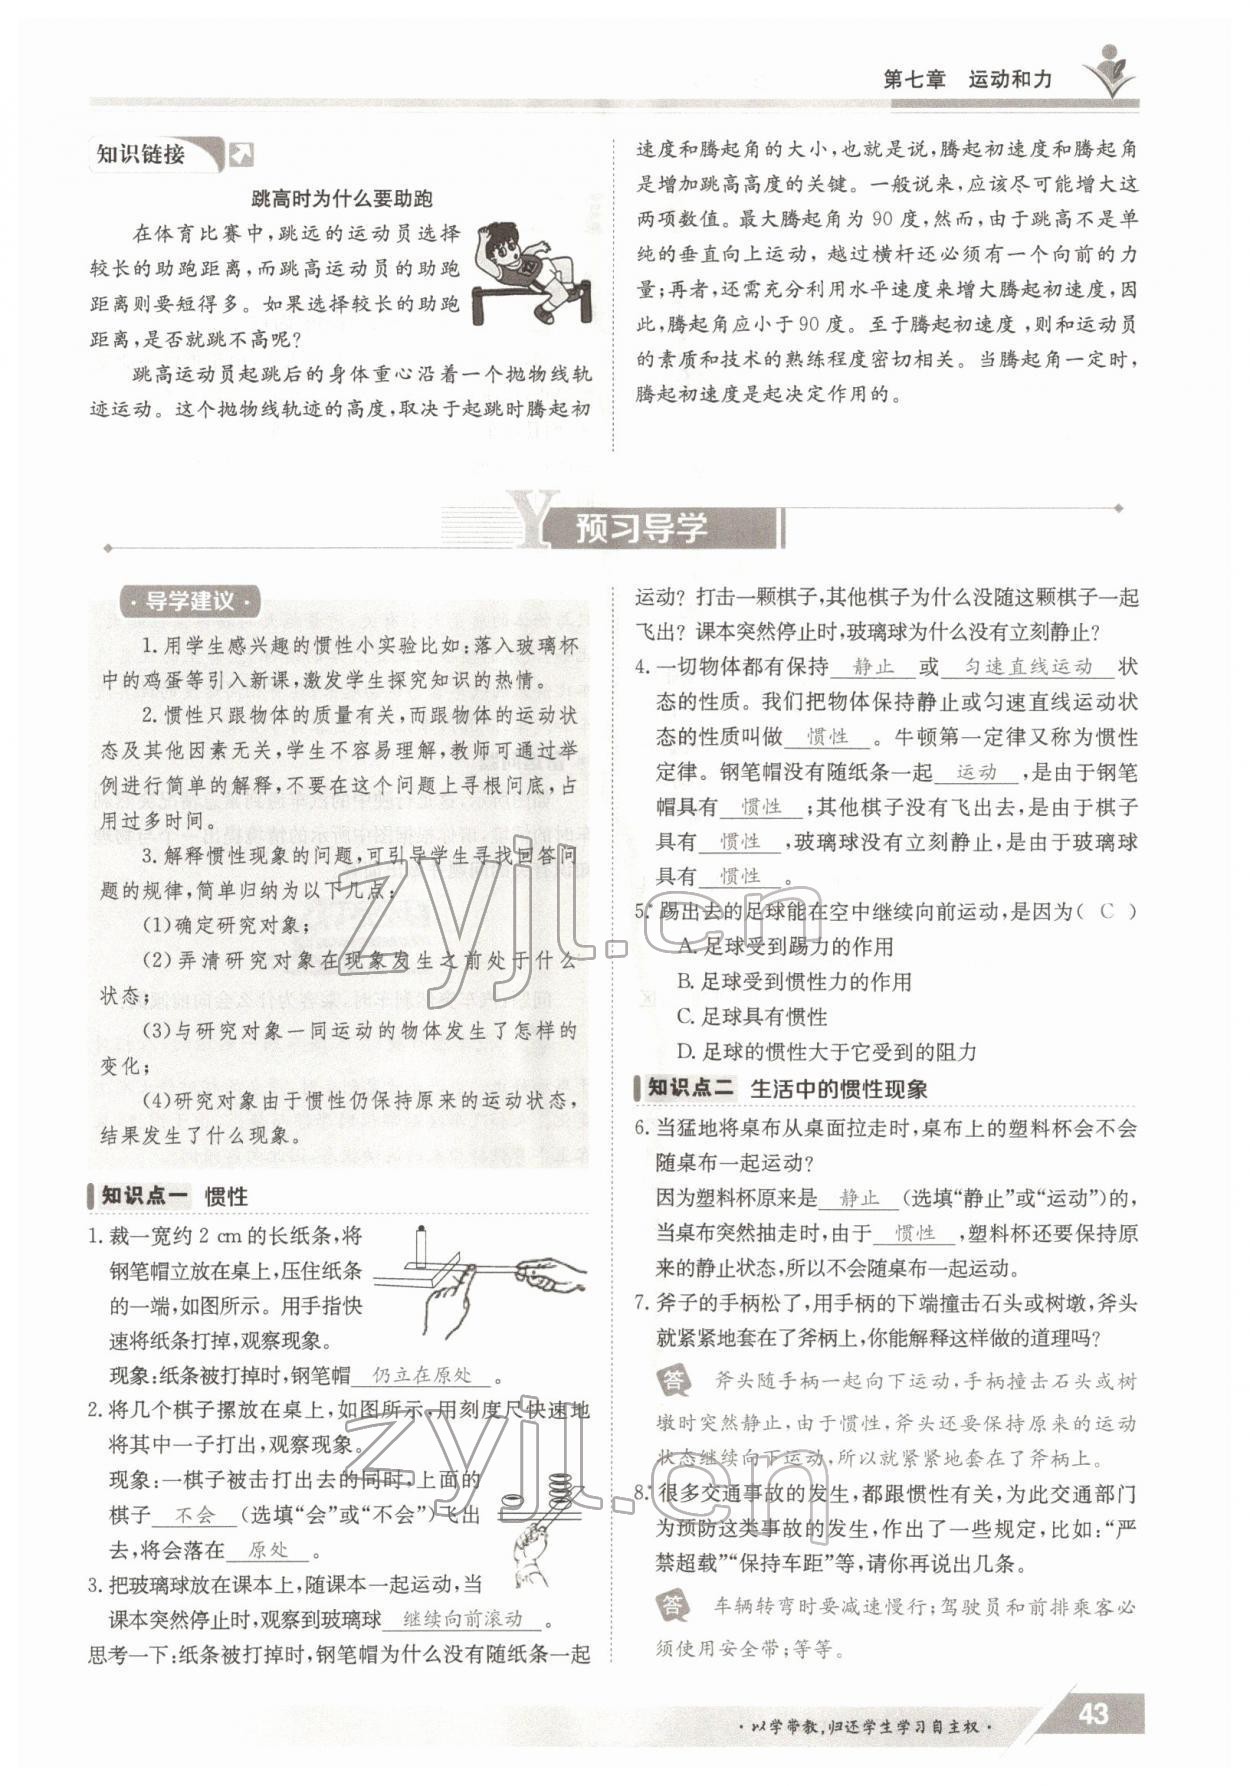 第七章 运动和力
知识链接
跳高时为什么要助跑
在体育比赛中,跳远的运动员选择
较长的助跑距离,而跳高运动员的助跑
距离则要短得多。如果选择较长的助跑
距离,是否就跳不高呢?
跳高运动员起跳后的身体重心沿着一个抛物线轨
迹运动。这个抛物线轨迹的高度,取决于起跳时腾起初
速度和腾起角的大小,也就是说,腾起初速度和腾起角
是增加跳高高度的关键。一般说来,应该尽可能增大这
两项数值。最大腾起角为 90 度,然而,由于跳高不是单
纯的垂直向上运动,越过横杆还必须有一个向前的力
量;再者,还需充分利用水平速度来增大腾起初速度,因
此,腾起角应小于 90 度。至于腾起初速度,则和运动员
的素质和技术的熟练程度密切相关。当腾起角一定时,
腾起初速度是起决定作用的。
Y 预习导学
·导学建议·
1. 用学生感兴趣的惯性小实验比如:落入玻璃杯
中的鸡蛋等引入新课,激发学生探究知识的热情。
2. 惯性只跟物体的质量有关,而跟物体的运动状
态及其他因素无关,学生不容易理解,教师可通过举
例进行简单的解释,不要在这个问题上寻根问底,占
用过多时间。
3. 解释惯性现象的问题,可引导学生寻找回答问
题的规律,简单归纳为以下几点:
(1)确定研究对象;
(2)弄清研究对象在现象发生之前处于什么
状态;
(3)与研究对象一同运动的物体发生了怎样的
变化;
(4)研究对象由于惯性仍保持原来的运动状态,
结果发生了什么现象。
知识点一 惯性
1. 裁一宽约 2 cm 的长纸条,将
钢笔帽立放在桌上,压住纸条
的一端,如图所示。用手指快
速将纸条打掉,观察现象。
现象:纸条被打掉时,钢笔帽 仍立在原处 。
2. 将几个棋子摞放在桌上,如图所示,用刻度尺快速地
将其中一子打出,观察现象。
现象:一棋子被击打出去的同时,上面的
棋子 不会 (选填“会”或“不会”)飞出
去,将会落在 原处 。
3. 把玻璃球放在课本上,随课本一起运动,当
课本突然停止时,观察到玻璃球 继续向前滚动 。
思考一下:纸条被打掉时,钢笔帽为什么没有随纸条一起
运动? 打击一颗棋子,其他棋子为什么没随这颗棋子一起
飞出? 课本突然停止时,玻璃球为什么没有立刻静止?
4. 一切物体都有保持 静止 或 匀速直线运动 状
态的性质。我们把物体保持静止或匀速直线运动状
态的性质叫做 惯性 。牛顿第一定律又称为惯性
定律。钢笔帽没有随纸条一起 运动 ,是由于钢笔
帽具有 惯性 ;其他棋子没有飞出去,是由于棋子
具有 惯性 ,玻璃球没有立刻静止,是由于玻璃球
具有 惯性 。
5. 踢出去的足球能在空中继续向前运动,是因为( C )
A. 足球受到踢力的作用
B. 足球受到惯性力的作用
C. 足球具有惯性
D. 足球的惯性大于它受到的阻力
知识点二 生活中的惯性现象
6. 当猛地将桌布从桌面拉走时,桌布上的塑料杯会不会
随桌布一起运动?
因为塑料杯原来是 静止 (选填“静止”或“运动”)的,
当桌布突然抽走时,由于 惯性 ,塑料杯还要保持原
来的静止状态,所以不会随桌布一起运动。
7. 斧子的手柄松了,用手柄的下端撞击石头或树墩,斧头
就紧紧地套在了斧柄上,你能解释这样做的道理吗?
答 斧头随手柄一起向下运动,手柄撞击石头或树
墩时突然静止,由于惯性,斧头还要保持原来的运动
状态继续向下运动,所以就紧紧地套在了斧柄上。
8. 很多交通事故的发生,都跟惯性有关,为此交通部门
为预防这类事故的发生,作出了一些规定,比如:“严
禁超载”“保持车距”等,请你再说出几条。
答 车辆转弯时要减速慢行;驾驶员和前排乘客必
须使用安全带;等等。
zyjl.cn
zyjl.cn
·以学带教,归还学生学习自主权·
43